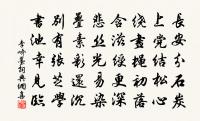 長安分石炭
上黨結松心
繞畫蠅初落
含滋綬更深
悲絲光易染
疊素彩還沉
別有張芝學
書池幸見臨
李嶠墨